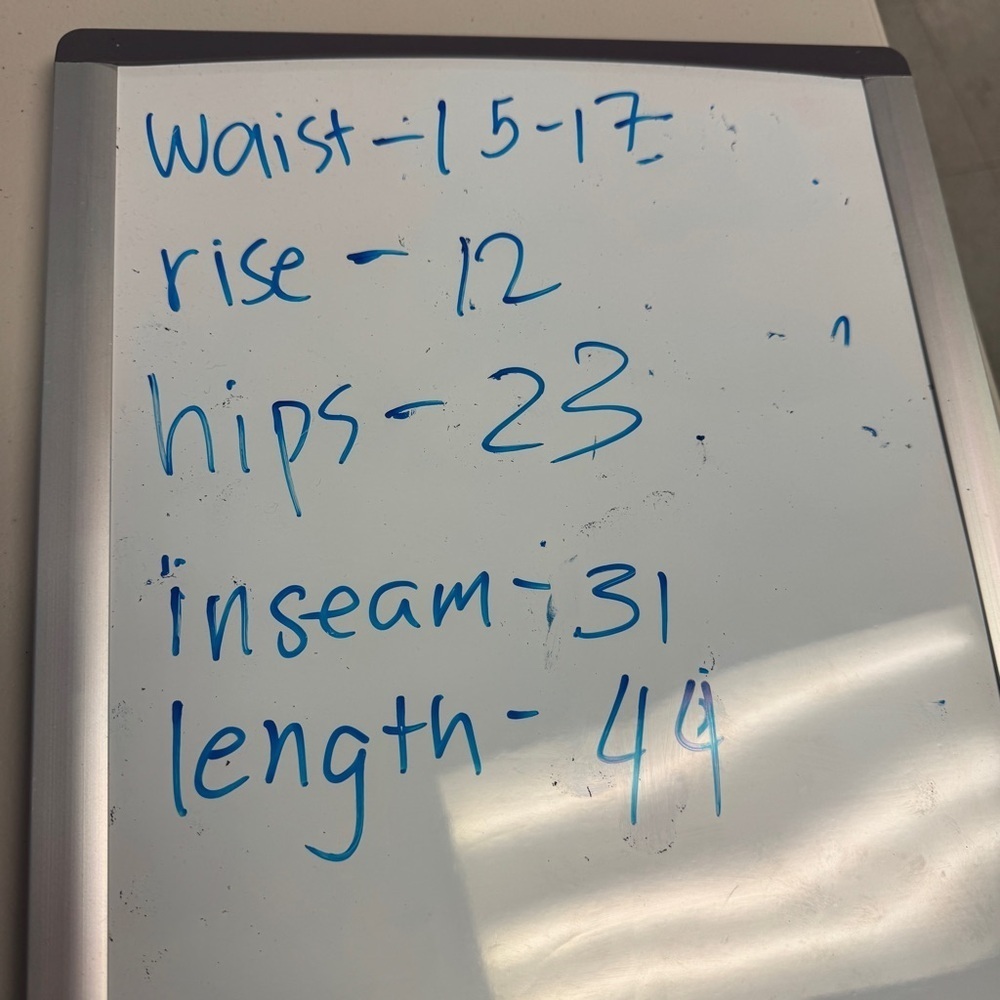 waist - 15-17
rise - 12
hips - 23
inseam - 31
length - 44